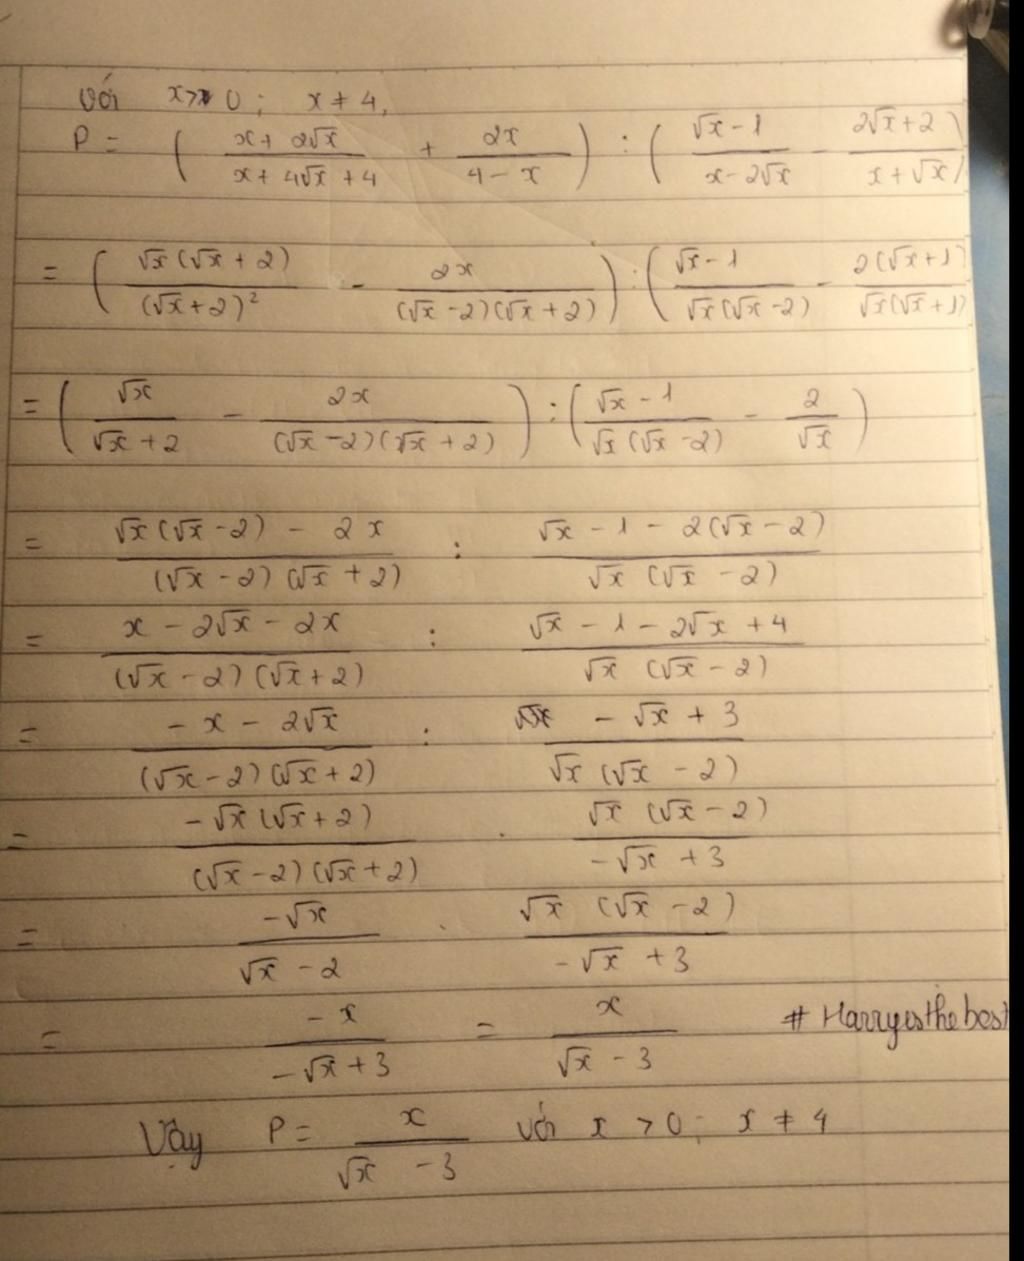 Với x > 0 ; x ≠ 4,
P = ( (x + 2√x)/(x + 4√x + 4) + 2x/(4 - x) ) : ( (√x - 1)/(x - 2√x) - (2√x + 2)/(x + √x) )
= ( √x(√x + 2)/(√x + 2)² - 2x/((√x - 2)(√x + 2)) ) : ( (√x - 1)/(√x(√x - 2)) - 2(√x + 1)/(√x(√x + 1)) )
= ( √x/(√x + 2) - 2x/((√x - 2)(√x + 2)) ) : ( (√x - 1)/(√x(√x - 2)) - 2/√x )
= (√x(√x - 2) - 2x)/((√x - 2)(√x + 2)) : (√x - 1 - 2(√x - 2))/(√x(√x - 2))
= (x - 2√x - 2x)/((√x - 2)(√x + 2)) : (√x - 1 - 2√x + 4)/(√x(√x - 2))
= (- x - 2√x)/((√x - 2)(√x + 2)) : (- √x + 3)/(√x(√x - 2))
= (-√x(√x + 2))/((√x - 2)(√x + 2)) . (√x(√x - 2))/(-√x + 3)
= (-√x)/(√x - 2) . (√x(√x - 2))/(-√x + 3)
= (-x)/(-√x + 3) = x/(√x - 3) # Harryisthebest
Vậy P = x/(√x - 3) với x > 0; x ≠ 4